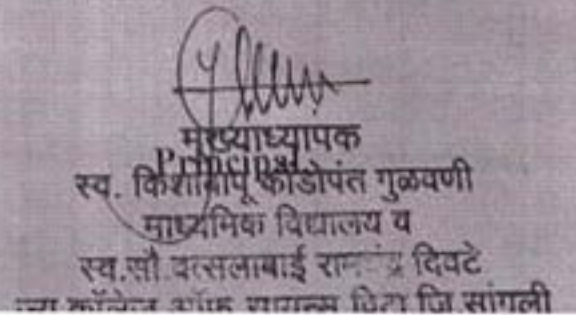 मुख्याध्यापक
Principal
स्व. किशाबापू कोंडोपंत गुळवणी
माध्यमिक विद्यालय व
स्व.सौ.वत्सलाबाई रामचंद्र दिवटे
कॉलेज ऑफ सायन्स विटा जि.सांगली